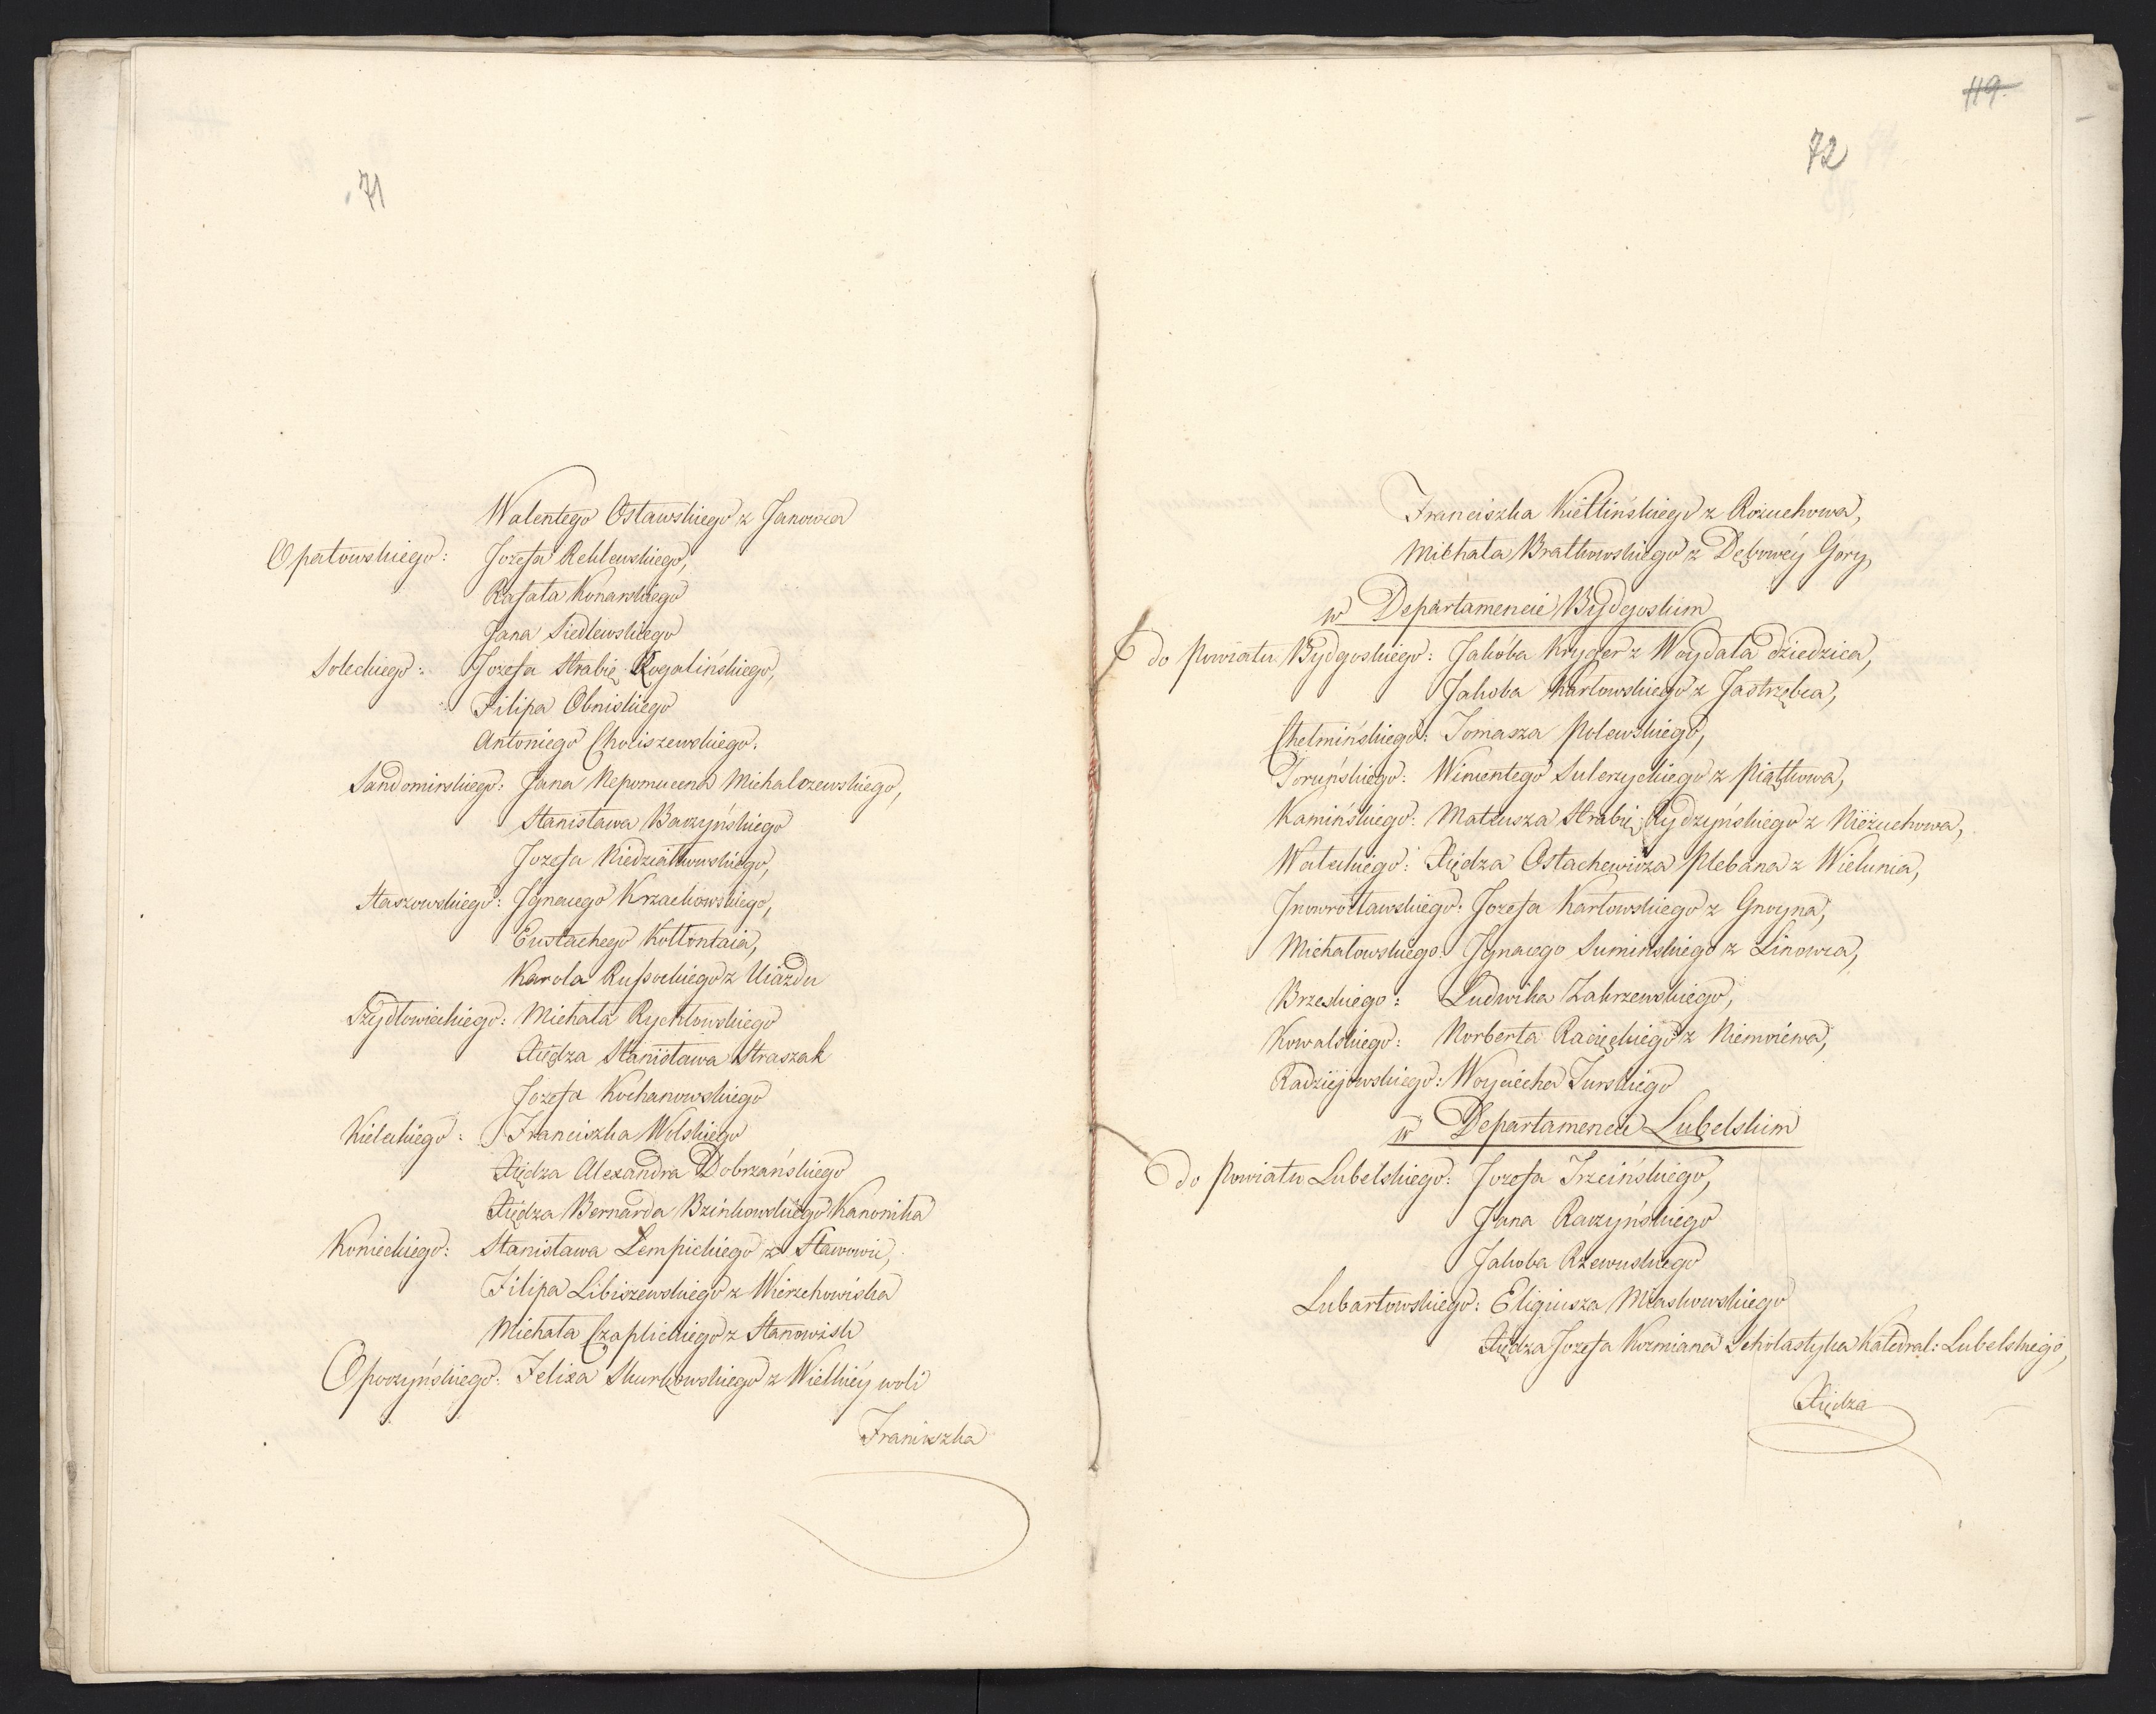 71
Walentego Osławskiego z Janowca
Opatowskiego: Jozefa Reklewskiego,
Rafała Konarskiego
Jana Siedlewskiego
Soleckiego: Jozefa Hrabię Rogalińskiego,
Filipa Obniskiego
Antoniego Choliszewskiego.
Sandomirskiego: Jana Nepomucena Michalczewskiego,
Stanisława Baczyńskiego
Jozefa Niedziałkowskiego,
Staszowskiego: Ignacego Krzackowskiego,
Eustachego Kołłontaia,
Karola Russockiego z Uiazdu
Szydłowieckiego: Michała Rychłowskiego
Xiędza Stanisława Straszak
Jozefa Kochanowskiego
Kieleckiego: Franciszka Wolskiego
Xiędza Alexandra Dobrzańskiego
Xiędza Bernarda Bzinkowskiego Kanonika
Konieckiego: Stanisława Lempickiego z Sławowic,
Filipa Libiszewskiego z Wierzchowiska
Michała Czaplickiego z Stanowisk
Opoczyńskiego: Felixa Skurkowskiego z Wielkiéy woli
Franciszka
119.
72
Franciszka Kietlińskiego z Rożuchowa,
Michała Bratkowskiego z Dębowéy Góry,
w Departamencie Bydgoskim
do Powiatu Bydgoskiego: Jakóba Kryger z Woydała dziedzica,
Jakoba Karłowskiego z Jastrzębca,
Chełmińskiego: Tomasza Polewskiego,
Toruńskiego: Wincentego Sulerzyckiego z Piątkowa,
Kamińskiego: Mateusza Hrabię Rydzyńskiego z Nieżuchowa,
Wałeckiego: Xiędza Ostachewicza Plebana z Wielunia,
Jnowrocławskiego: Jozefa Karłowskiego z Gnoyna,
Michałowskiego: Ignacego Sumińskiego z Linowca,
Brzeskiego: Ludwika Zakrzewskiego,
Kowalskiego: Norberta Racięckiego z Niemoiewa,
Radziejowskiego: Woyciecha Turskiego
w Departamencie Lubelskim
do Powiatu Lubelskiego: Jozefa Trzcińskiego,
Jana Raczyńskiego
Jakoba Rzewuskiego
Lubartowskiego: Eligiusza Miaskowskiego
Xiędza Jozefa Kozmiana Scholastyka Katedral: Lubelskiego,
Xiędza